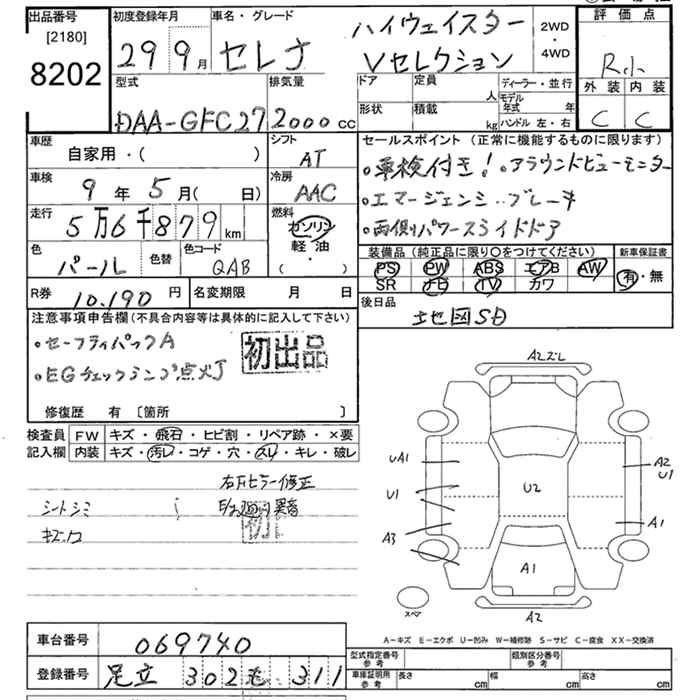 出品番号
[2180]
8202
初度登録年月
29 9月
車名・グレード
セレナ
ハイウェイスター
Vセレクション
2WD
・
4WD
評価点
R小
外装 内装
C C
型式
DAA-GFC27
排気量
2000cc
ドア
定員
人
形状
積載
kg
ディーラー・並行
モデル年式 年
ハンドル 左・右
車歴
自家用・( )
シフト
AT
車検
9年5月( 日)
冷房
AAC
走行
5万6千879km
燃料
ガソリン
軽油
( ・ )
色
パール
色替
色コード
QAB
R券
10,190円
名変期限 月 日
セールスポイント(正常に機能するものに限ります)
・車検付き!・アラウンドビューモニター
・エマージェンシーブレーキ
・両側パワースライドドア
装備品(純正品に限り○をつけてください)
PS PW ABS エアB AW
SR ナビ TV カワ
新車保証書
有・無
後日品
地図SD
注意事項申告欄(不具合内容等は具体的に記入して下さい)
・セーフティパックA
・EGチェックランプ点灯
初出品
修復歴 有 [箇所 ]
検査員記入欄
FW キズ・飛石・ヒビ割・リペア跡・×要
内装 キズ・汚レ・コゲ・穴・スレ・キレ・破レ
右Fピラー修正
シートシミ
キズ
初
A2ズレ
UA1
U1
A3
U2
A2
U1
A1
A1
A2
スペア
A－キズ E－エクボ U－凹み W－補修跡 S－サビ C－腐食 XX－交換済
車台番号
069740
登録番号
足立 302 も 311
型式指定番号
参考
類別区分番号
参考
車庫証明用
参考
長さ cm
幅 cm
高さ cm